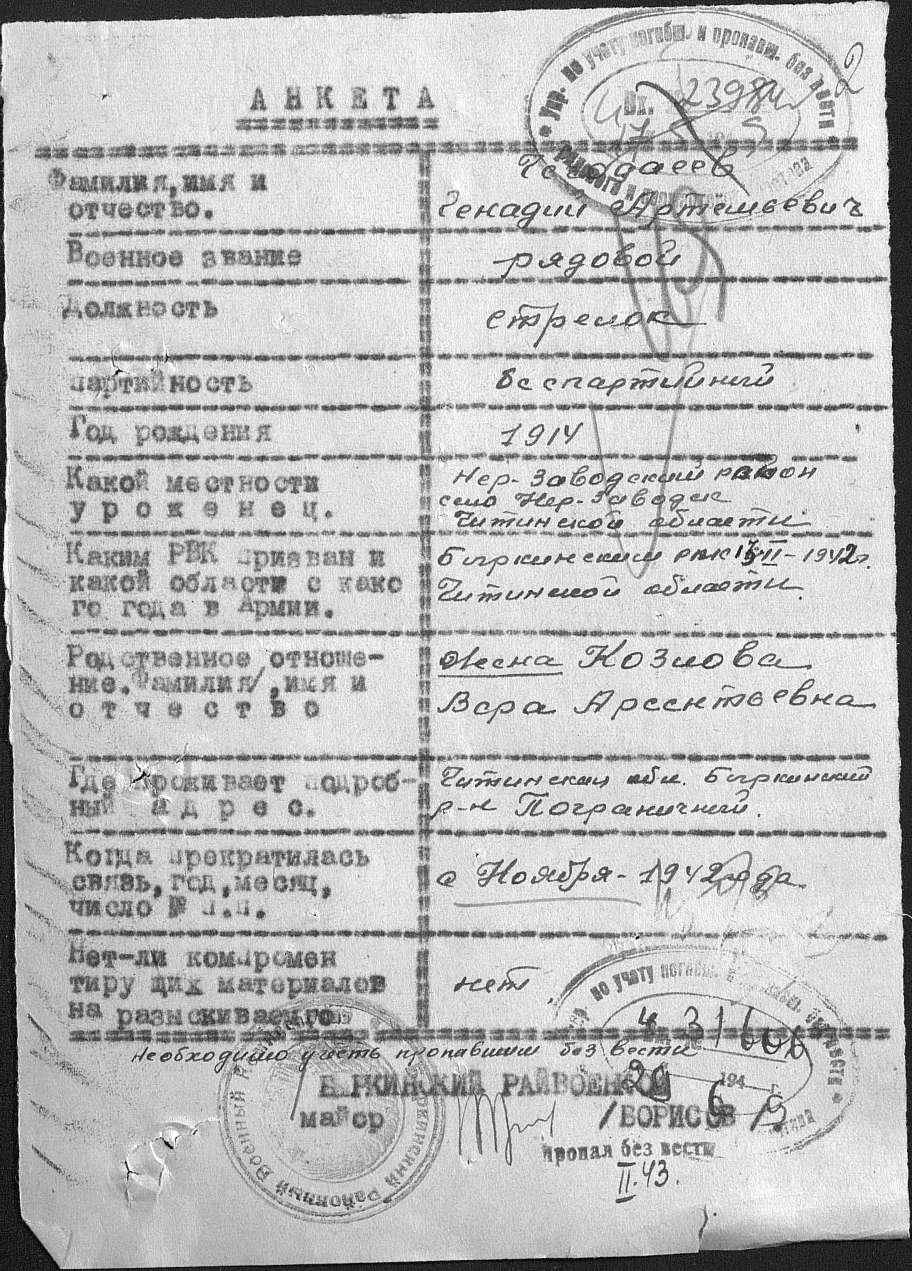 2
Упр. по учету погибш. и пропавш. без вести
Вх. 23984
АНКЕТА
Фамилия, имя и
отчество.
Генадий Артемьевич
Военное звание
рядовой
Должность
стрелок
партийность
беспартийний
Год рождения
1914
Какой местности
уроженец.
Нер-Заводский район
село Нер-Заводск
Читинской области
Каким РВК призван и
какой области с како
го года в Армии.
Быркинским рвк II-1942г.
Читинской области.
Родственное отноше-
ние. Фамилия, имя и
отчество
Жена Козлова
Вера Арсентьевна
Где проживает подроб-
ный адрес.
Читинская обл. Быркинский
р-н Пограничний.
Когда прекратилась
связь, год, месяц,
число № п.п.
с Ноября-1942 года
Нет-ли компромен
тирущих материалов
на разыскиваемго
нет
по учету погибш. и
Необходимо учесть пропавшим без вести
БЫРКИНСКИЙ РАЙВОЕНКОМ
майор /БОРИСОВ/
194 г.
Быркинский Районный Военный
пропал без вести
II.43.